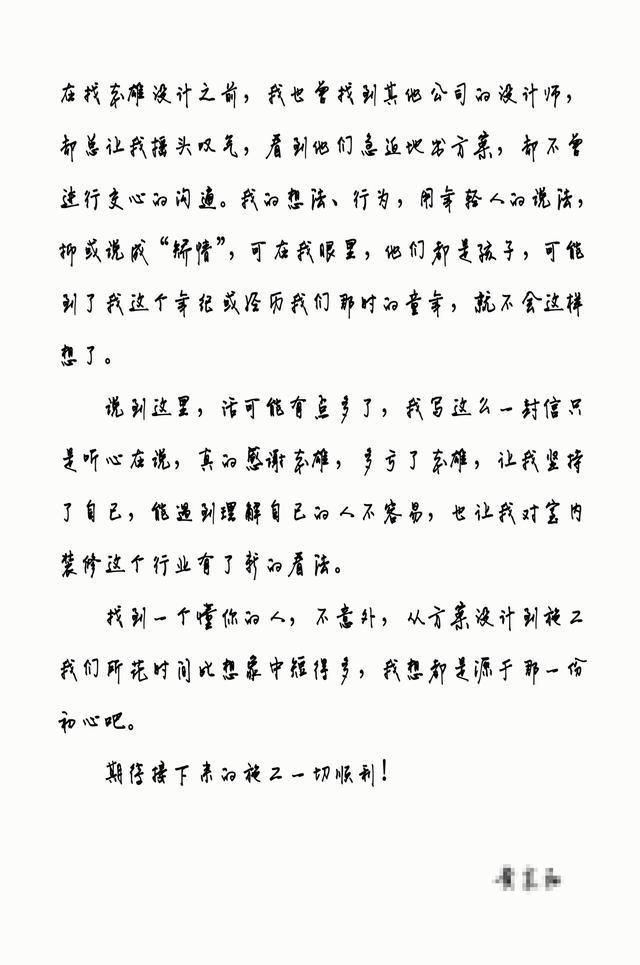 在找东雄设计之前，我也曾找到其他公司的设计师，
都总让我摇头叹气，看到他们急迫地出方案，都不曾
进行交心的沟通。我的想法、行为，用年轻人的说法，
抑或说成“矫情”，可在我眼里，他们都是孩子，可能
到了我这个年纪或经历我们那时的童年，就不会这样
想了。
说到这里，话可能有点多了，我写这么一封信只
是听心在说，真的感谢东雄，多亏了东雄，让我坚持
了自己，能遇到理解自己的人不容易，也让我对室内
装修这个行业有了新的看法。
找到一个懂你的人，不意外，从方案设计到施工
我们所花时间比想象中短得多，我想都是源于那一份
初心吧。
期待接下来的施工一切顺利！